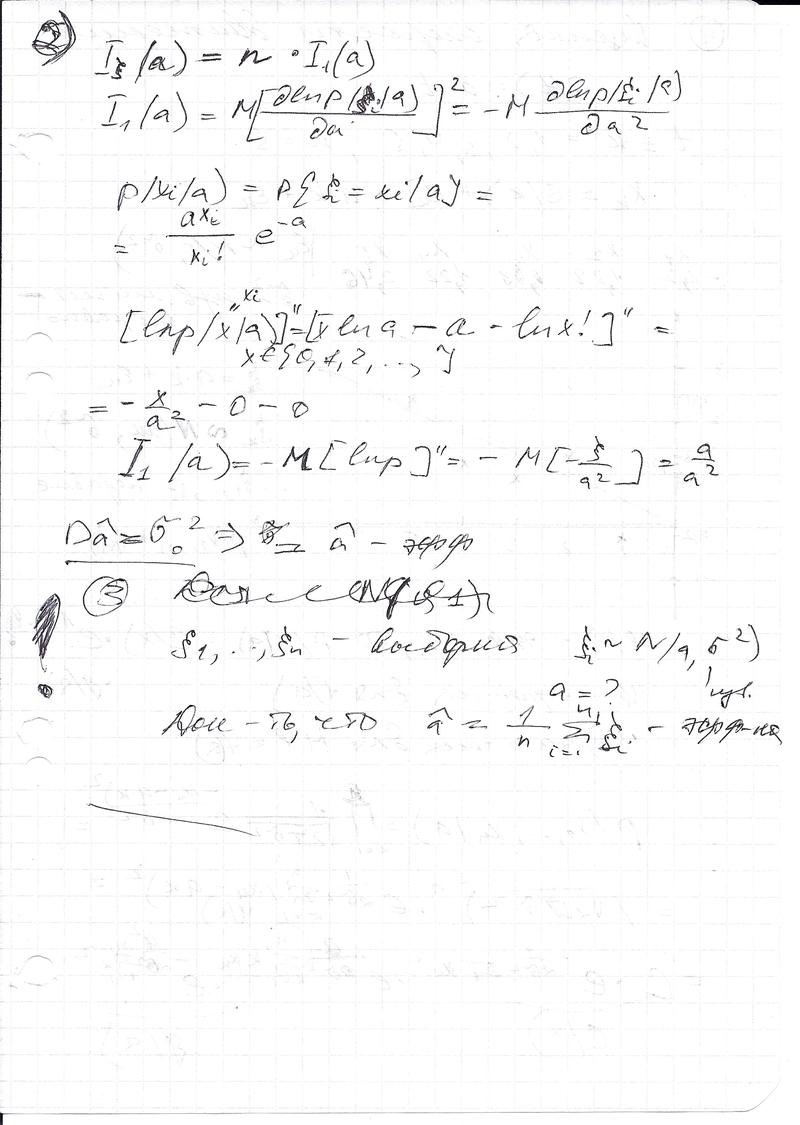 ②
I_ξ(a) = n · I₁(a)
I₁(a) = M[∂lnp(ξᵢ/a)/∂a]² = -M ∂lnp(ξᵢ/a)/∂a²
p(xᵢ/a) = P{ξᵢ = xᵢ/a} =
= a^xᵢ/xᵢ! e^-a
xᵢ
[lnp(x/a)]'' = [x ln a - a - lnx!]'' =
x ∈ {0, 1, 2, ..., }
= -x/a² - 0 - 0
I₁(a) = -M[lnp]'' = -M[-ξ/a²] = a/a²
Dâ = σ₀² ⇒ â - эфф
③ N(0,1)
! ξ₁, .., ξn - выборка ξᵢ ~ N(a, σ²)
a = ?
Док-ть, что â = 1/n Σ i=1 n ξᵢ - эфф-на